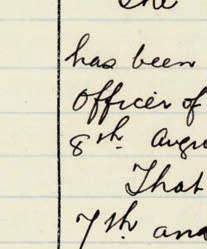 She
has been
Officer of
8th. Augu
That
7th. and